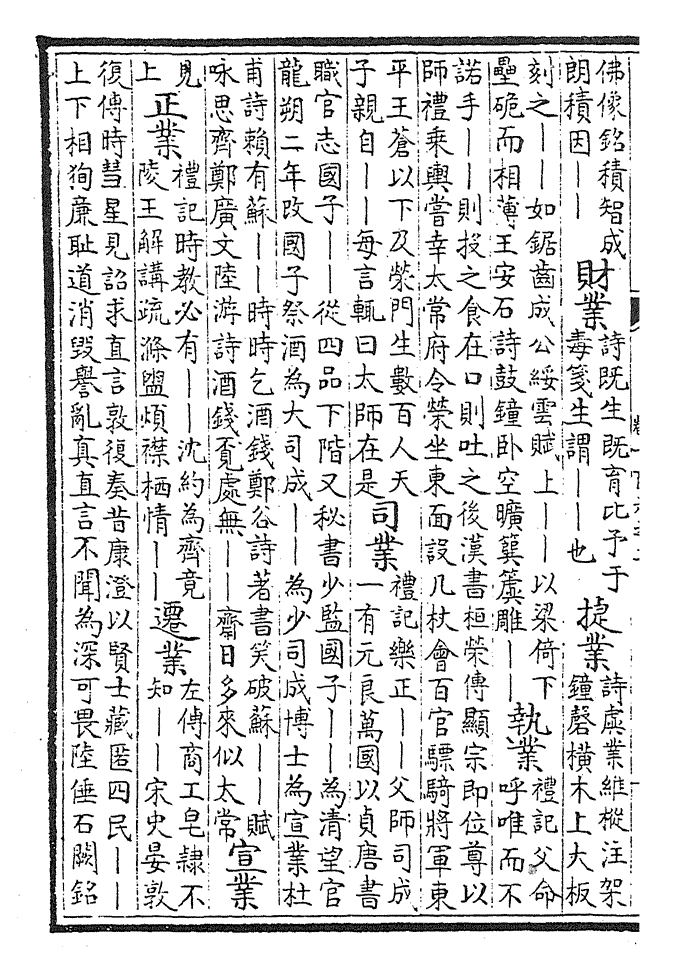 佛像銘積智成
朗積因——
財業
詩既生既育比予于
毒箋生謂——也
捷業
詩虡業維樅注架
鐘磬横木上大板
刻之——如鋸齒成公綏雲賦上——以梁倚下
壘硊而相薄王安石詩鼓鐘卧空曠簨簴雕——
執業
禮記父命
呼唯而不
諾手——則投之食在口則吐之後漢書桓榮傳顯宗即位尊以
師禮乗輿嘗幸太常府令榮坐東面設几杖會百官驃騎將軍東
平王蒼以下及榮門生數百人天
子親自——每言輒曰太師在是
司業
禮記樂正——父師司成
一有元良萬國以貞唐書
職官志國子——從四品下階又秘書少監國子——為清望官
龍朔二年改國子祭酒為大司成——為少司成博士為宣業杜
甫詩賴有蘇——時時乞酒錢鄭谷詩著書笑破蘇——賦
咏思齊鄭廣文陸游詩酒錢覔處無——齋日多來似太常
宣業
見
上
正業
禮記時教必有——沈約為齊竟
陵王解講疏滌盥煩襟栖情——
遷業
左傳商工皂隷不
知——宋史晏敦
復傳時彗星見詔求直言敦復奏昔康澄以賢士藏匿四民——
上下相狥廉耻道消毁譽亂真直言不聞為深可畏陸倕石闕銘